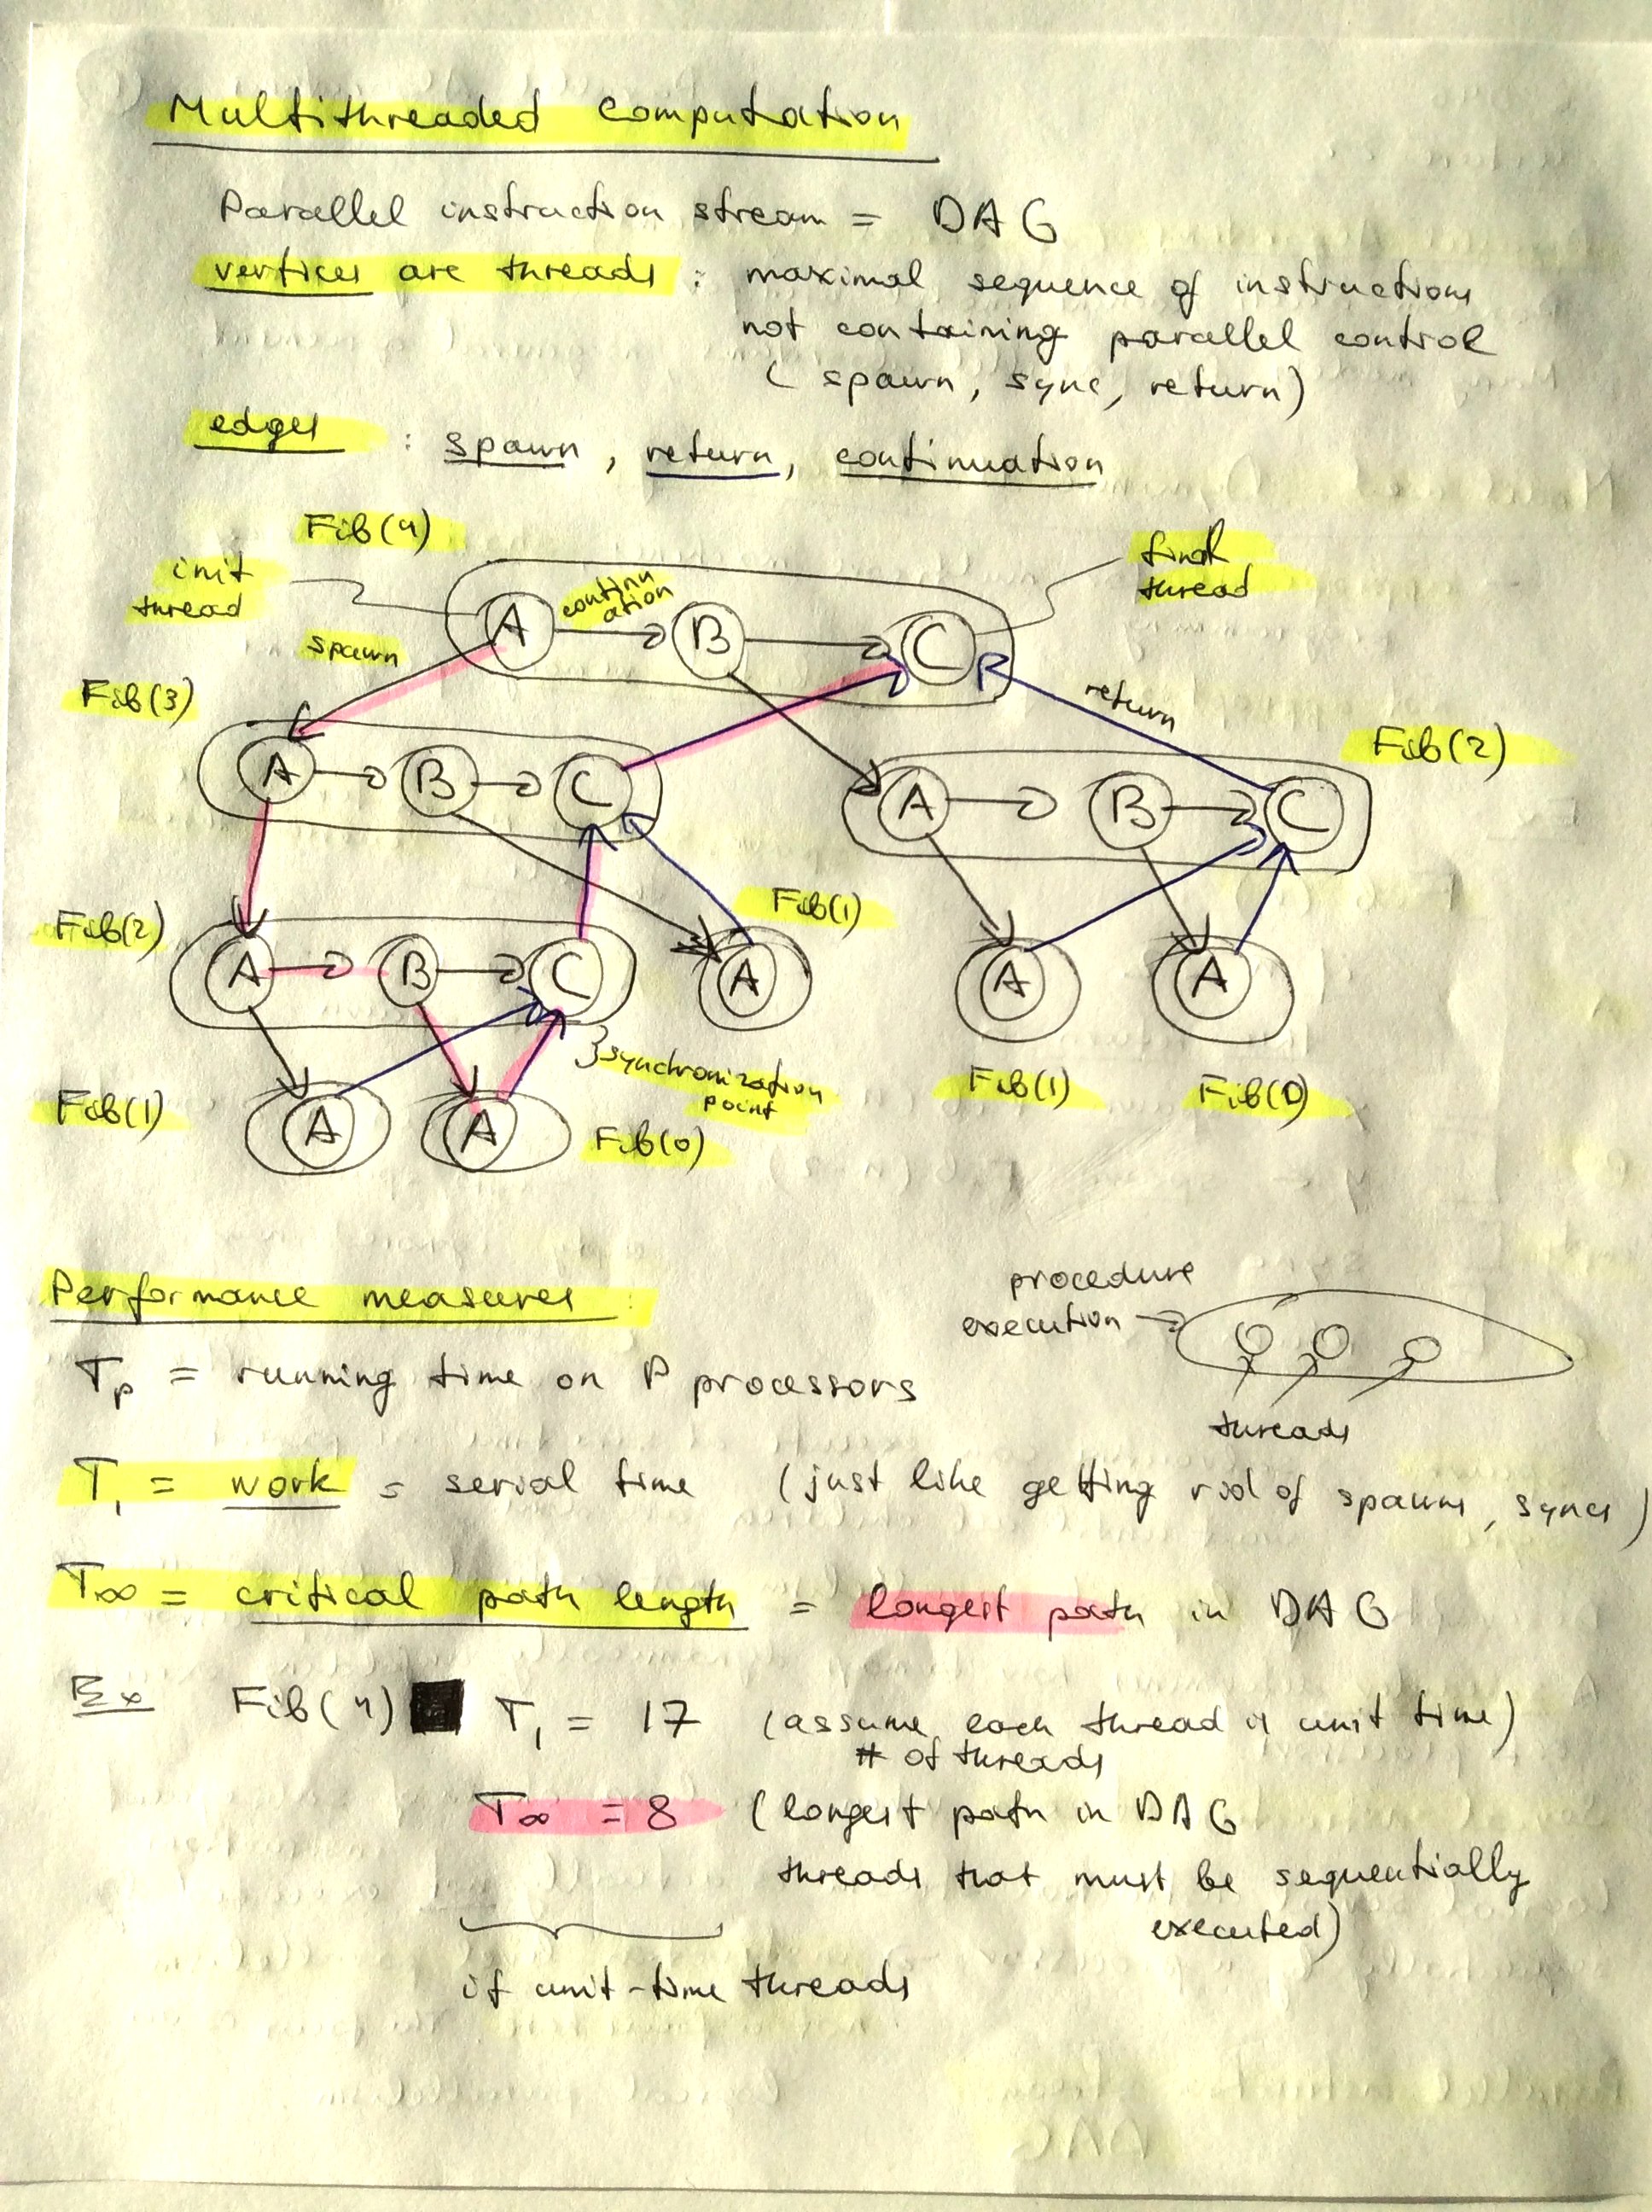 Multithreaded Computation
Parallel instruction stream = DAG
vertices are threads : maximal sequence of instructions
not containing parallel control
( spawn, sync, return)
edges : spawn, return, continuation
Fib(4)
init
thread
A
continu
ation
B
C
final
thread
spawn
Fib(3)
return
Fib(2)
A B C
A B C
Fib(2)
A B C
Fib(1)
A
A
A
}synchronization
point
Fib(1)
A
A
Fib(0)
Fib(1)
Fib(0)
Performance measures :
procedure
execution
threads
Tp = running time on P processors
T1 = work = serial time (just like getting rid of spawns, syncs)
T∞ = critical path length = longest path in DAG
Ex Fib(4) T1 = 17 (assume each thread is unit time)
# of threads
T∞ = 8 (longest path in DAG
threads that must be sequentially
executed)
if unit-time threads